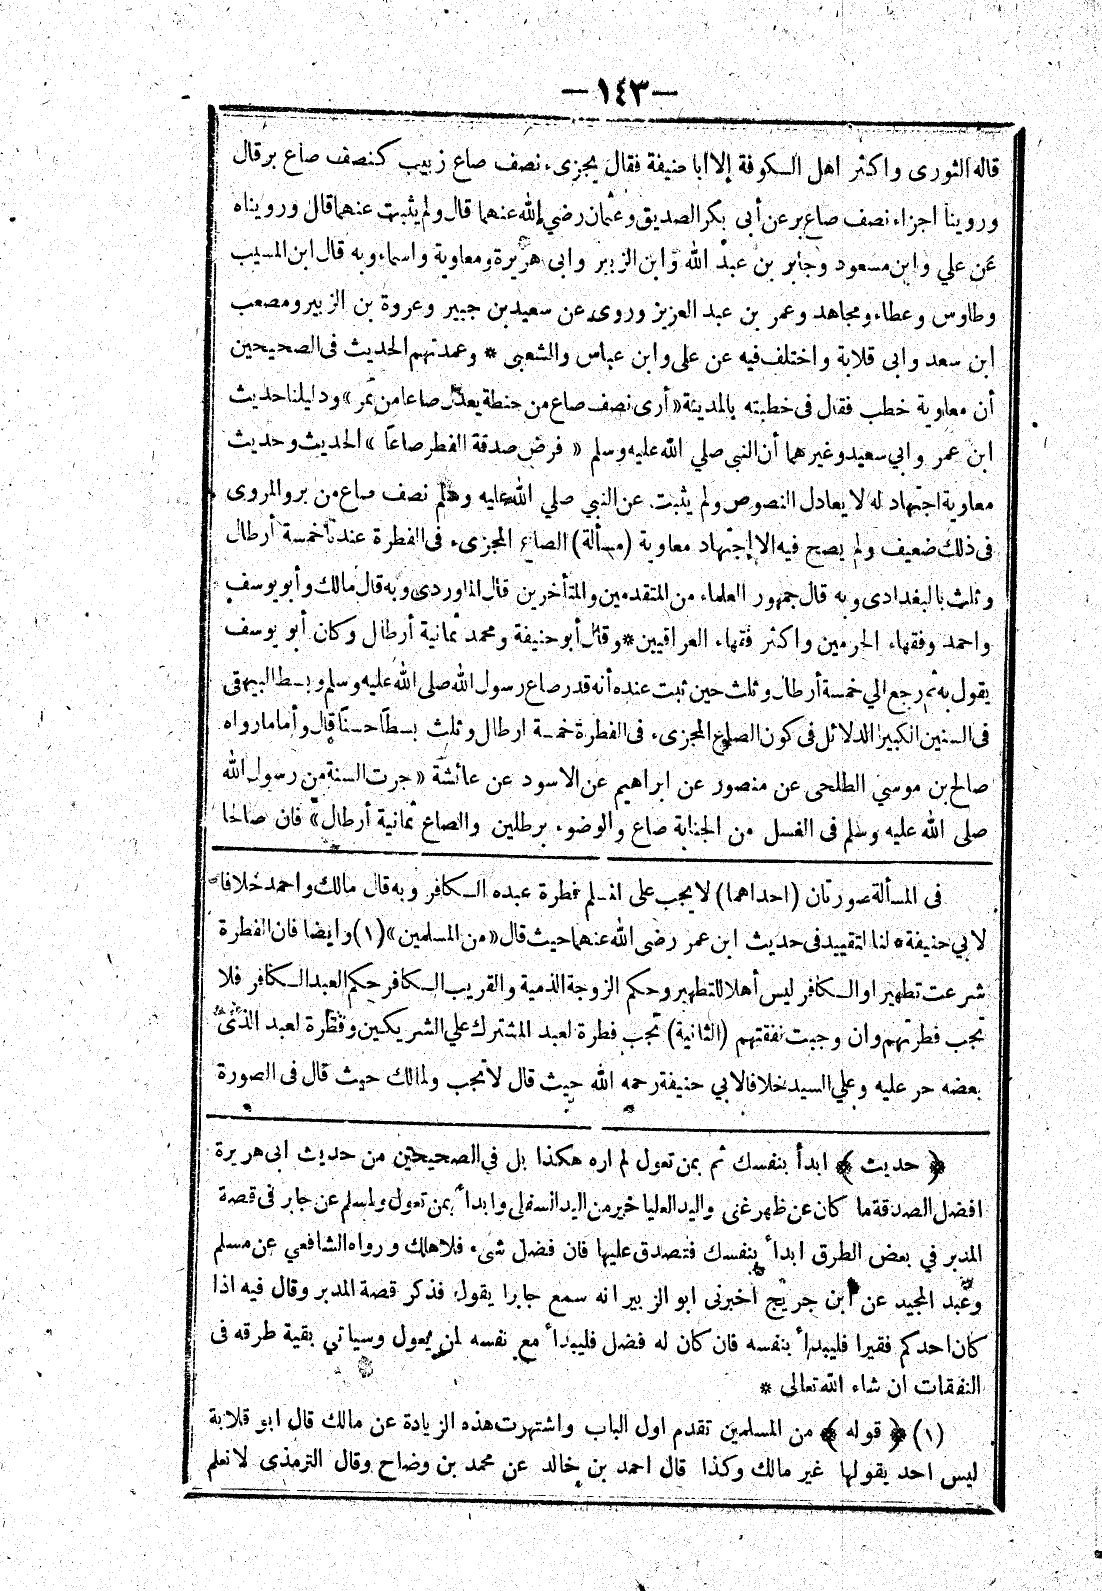 —١٤٣—
قاله الثورى واكثر اهل الكوفة إلا أبا حنيفة فقال يجزىء نصف صاع زبيب كنصف صاع بر قال
وروينا اجزاء نصف صاع بر عن أبى بكر الصديق وعثمان رضي الله عنهما قال ولم يثبت عنهما قال ورويناه
عن علي وابن مسعود وجابر بن عبد الله وابن الزبير وابى هريرة ومعاوية واسماء وبه قال ابن المسيب
وطاوس وعطاء ومجاهد وعمر بن عبد العزيز وروى عن سعيد بن جبير وعروة بن الزبير ومصعب
ابن سعد وابى قلابة واختلف فيه عن على وابن عباس والشعبى * وعمدتهم الحديث فى الصحيحين
أن معاوية خطب فقال فى خطبته بالمدينة «أرى نصف صاع من حنطة يعدل صاعا من تمر» ودليلنا حديث
ابن عمر وابي سعيد وغيرهما أن النبى صلي الله عليه وسلم « فرض صدقة الفطر صاعًا » الحديث وحديث
معاوية اجتهاد له لا يعادل النصوص ولم يثبت عن النبي صلي الله عليه وسلم نصف صاع من بر والمروى
فى ذلك ضعيف ولم يصح فيه الا إجتهاد معاوية (مسألة) الصاع المجزىء فى الفطرة عندنا خمسة أرطال
وثلث بالبغدادى وبه قال جمهور العلماء من المتقدمين والمتأخرين قال الماوردى وبه قال مالك وأبو يوسف
واحمد وفقهاء الحرمين واكثر فقهاء العراقيين * وقال أبو حنيفة ومحمد ثمانية أرطال وكان أبو يوسف
يقول به ثم رجع الي خمسة أرطال وثلث حين ثبت عنده أنه قدر صاع رسول الله صلى الله عليه وسلم وبسط البيهقى
فى السنن الكبير الدلائل فى كون الصاع المجزىء فى الفطرة خمسة ارطال وثلث بسطًا حسنًا قال وأما ما رواه
صالح بن موسي الطلحى عن منصور عن ابراهيم عن الاسود عن عائشة « جرت السنة من رسول الله
صلى الله عليه وسلم فى الغسل من الجنابة صاع والوضوء برطلين والصاع ثمانية أرطال» فان صالحا
فى المسألة صورتان (احداهما) لا يجب على المسلم فطرة عبده الكافر وبه قال مالك واحمد خلافا
لابي حنيفة * لنا التقييد فى حديث ابن عمر رضى الله عنهما حيث قال «من المسلمين» (١) وايضا فان الفطرة
شرعت تطهيرا والكافر ليس أهلا للتطهير وحكم الزوجة الذمية والقريب الكافر حكم العبد الكافر فلا
تجب فطرتهم وان وجبت نفقتهم (الثانية) تجب فطرة لعبد المشترك علي الشريكين وفطرة لعبد الذى
بعضه حر عليه وعلي السيد خلافا لابي حنيفة رحمه الله حيث قال لا تجب ولمالك حيث قال فى الصورة
﴿ حديث ﴾ ابدأ بنفسك ثم بمن تعول لم اره هكذا بل في الصحيحين من حديث ابى هريرة
افضل الصدقة ما كان عن ظهر غنى واليد العليا خير من اليد السفلى وابدأ بمن تعول ولمسلم عن جابر فى قصة
المدبر في بعض الطرق ابدأ بنفسك فتصدق عليها فان فضل شىء فلاهلك ورواه الشافعي عن مسلم
وعبد المجيد عن ابن جريج اخبرنى ابو الزبير انه سمع جابرا يقول فذكر قصة المدبر وقال فيه اذا
كان احدكم فقيرا فليبدأ بنفسه فان كان له فضل فليبدأ مع نفسه لمن يعول وسياتي بقية طرقه فى
النفقات ان شاء الله تعالى *
(١) ﴿ قوله ﴾ من المسلمين تقدم اول الباب واشتهرت هذه الزيادة عن مالك قال ابو قلابة
ليس احد يقولها غير مالك وكذا قال احمد بن خالد عن محمد بن وضاح وقال الترمذى لا نعلم